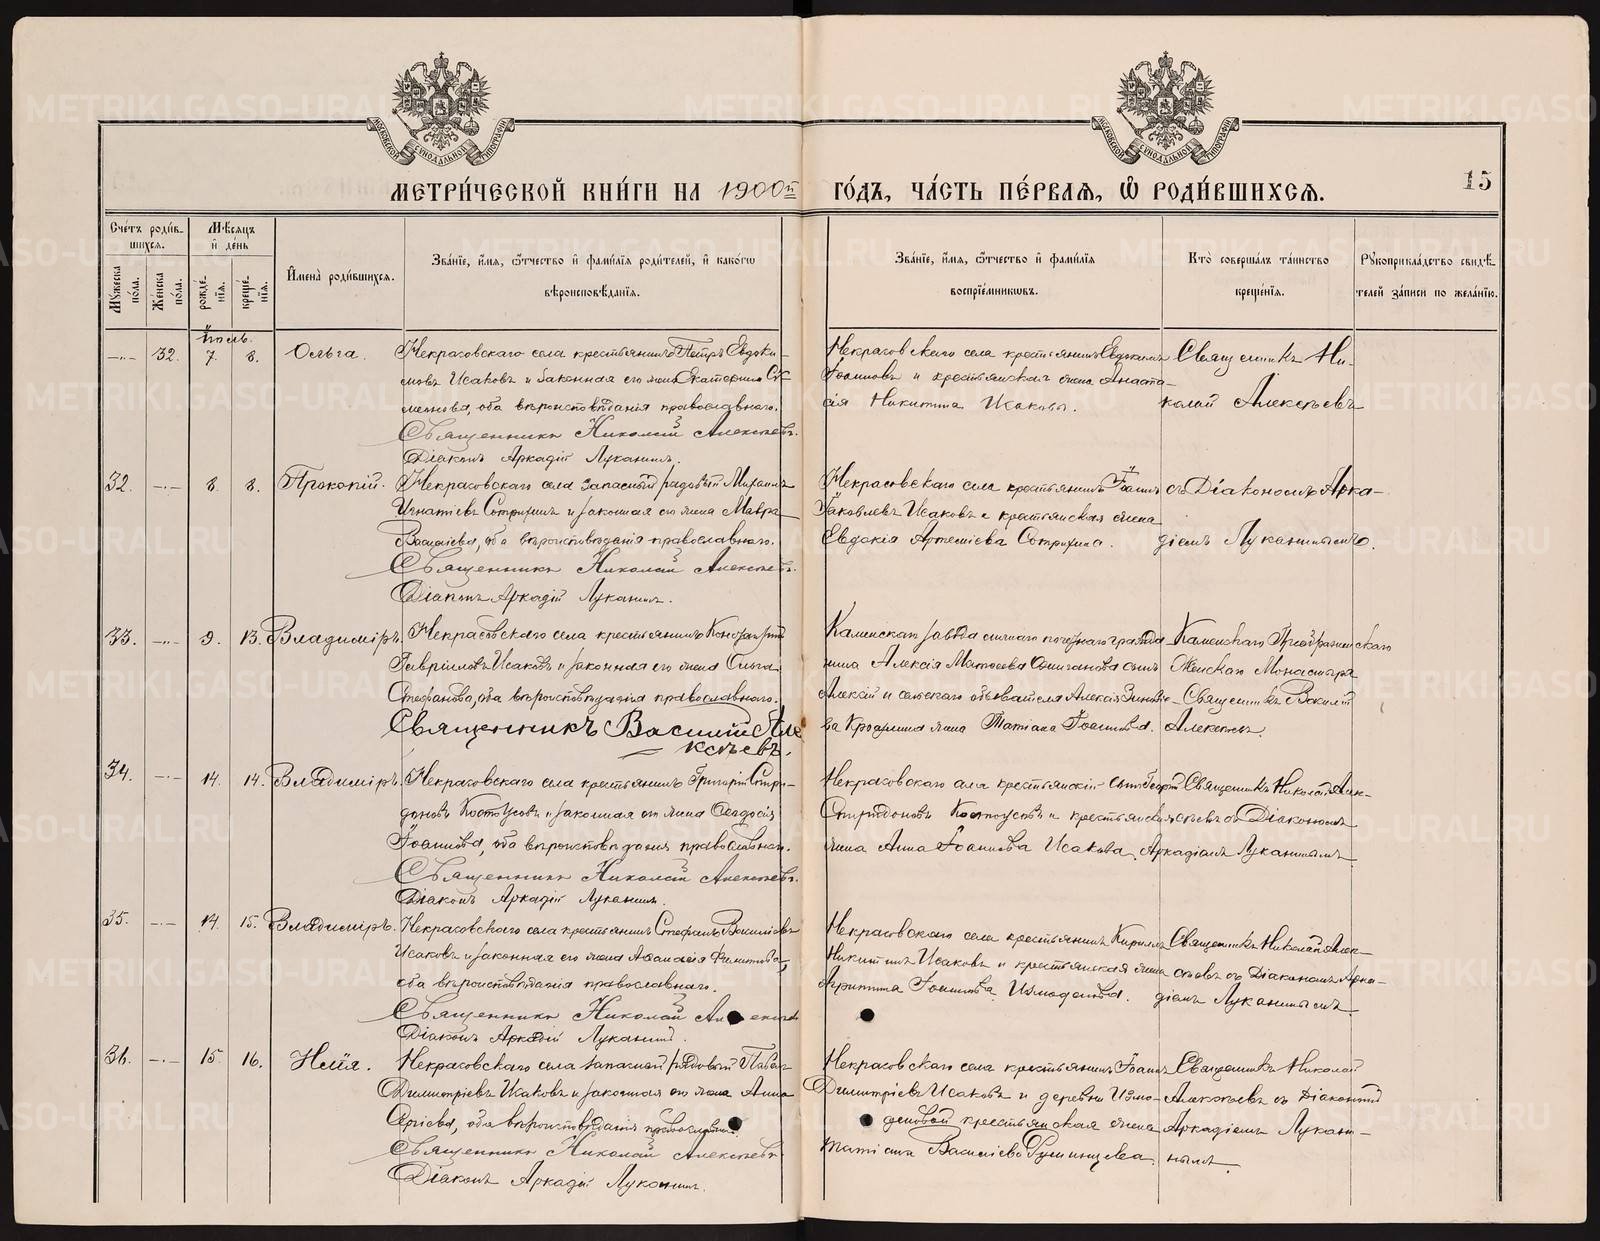 МЕТРИ́ЧЕСКОЙ КНИ́ГИ НА 1900й ГО́ДЪ, ЧА́СТЬ ПЕ́РВАѦ, Ѡ҆ РОДИ́ВШИХСѦ.
15
Сче́тъ роди́в-
шихсѧ.
Мѣ́сѧцъ
и҆ де́нь
Мꙋ́жеска по́ла.
Же́нска по́ла.
рожде́-
нїѧ.
креще́-
нїѧ.
И҆мена̀ роди́вшихсѧ.
Зва́нїе, и҆́мѧ, ѻ҆́тчество и҆ фамилїѧ роди́телей, и҆ како́гѡ
вѣроисповѣ́данїѧ.
Зва́нїе, и҆́мѧ, ѻ҆́тчество и҆ фами́лїѧ
воспрїе́мникѡвъ.
Кто̀ соверша́лъ та́инство
креще́нїѧ.
Рꙋкоприкла́дство свидѣ́-
телей за́писи по жела́нїю.
Іюль.
32. 7. 8. Ольга.
Некрасовскаго села крестьянинъ Петръ Евдоки-
мовъ Исаковъ и законная его жена Екатерина Се-
менова, оба вѣроисповѣданія православнаго.
Священникъ Николай Алексѣевъ.
Діаконъ Аркадій Луканинъ.
Некрасовскаго села крестьянинъ Евдокимъ
Іоанновъ и крестьянская жена Анаста-
сія Никитина Исаковы.
Священникъ Ни-
колай Алексѣевъ
32. 8. 8. Прокопій.
Некрасовскаго села запасный рядовый Михаилъ
Игнатіевъ и законная его жена Мавра
Василіева, оба вѣроисповѣданія православнаго.
Священникъ Николай Алексѣевъ.
Діаконъ Аркадій Луканинъ.
Некрасовскаго села крестьянинъ Іоаннъ
Іаковлевъ Исаковъ и крестьянская жена
Евдокія Артеміева
съ Діакономъ Арка-
діемъ Луканинымъ.
33. 9. 13. Владиміръ.
Некрасовскаго села крестьянинъ
Гавріиловъ Исаковъ и законная его жена Ольга
Стефанова, оба вѣроисповѣданія православнаго.
Священникъ Василій Але
ксѣевъ.
Каменскаго завода почетнаго гражда-
нина Алексія Матѳеева сынъ
Алексій и сельскаго обывателя Алексія
жена Татіана Іоаннова.
Каменскаго Преображенскаго
Женскаго Монастыря
Священникъ Василій
Алексѣевъ.
34. 14. 14. Владиміръ.
Некрасовскаго села крестьянинъ Григорій Спири-
доновъ Костоусовъ и законная его жена Ѳеодосія
Іоаннова, оба вѣроисповѣданія православнаго.
Священникъ Николай Алексѣевъ.
Діаконъ Аркадій Луканинъ.
Некрасовскаго села крестьянскій сынъ Георгій
Спиридоновъ Костоусовъ и крестьянская
жена Анна Іоаннова Исакова.
Священникъ Николай Алек-
сѣевъ съ Діакономъ
Аркадіемъ Луканинымъ.
35. 14. 15. Владиміръ.
Некрасовскаго села крестьянинъ Стефанъ Василіевъ
Исаковъ и законная его жена Аѳанасія Филиппова,
оба вѣроисповѣданія православнаго.
Священникъ Николай Алексѣевъ
Діаконъ Аркадій Луканинъ.
Некрасовскаго села крестьянинъ Кириллъ
Никитинъ Исаковъ и крестьянская жена
Агриппина Іоаннова Измоденова.
Священникъ Николай Алек-
сѣевъ съ Діакономъ Арка-
діемъ Луканинымъ.
36. 15. 16. Илія.
Некрасовскаго села запасный рядовый Павелъ
Димитріевъ Исаковъ и законная его жена Анна
оба вѣроисповѣданія православнаго.
Священникъ Николай Алексѣевъ.
Діаконъ Аркадій Луканинъ.
Некрасовскаго села крестьянинъ Іоаннъ
Димитріевъ Исаковъ и деревни Измо-
деновой крестьянская жена
Татіана Василіева
Священникъ Николай
Алексѣевъ съ Діакономъ
Аркадіемъ Лукани-
нымъ.
METRIKI.GASO-URAL.RU